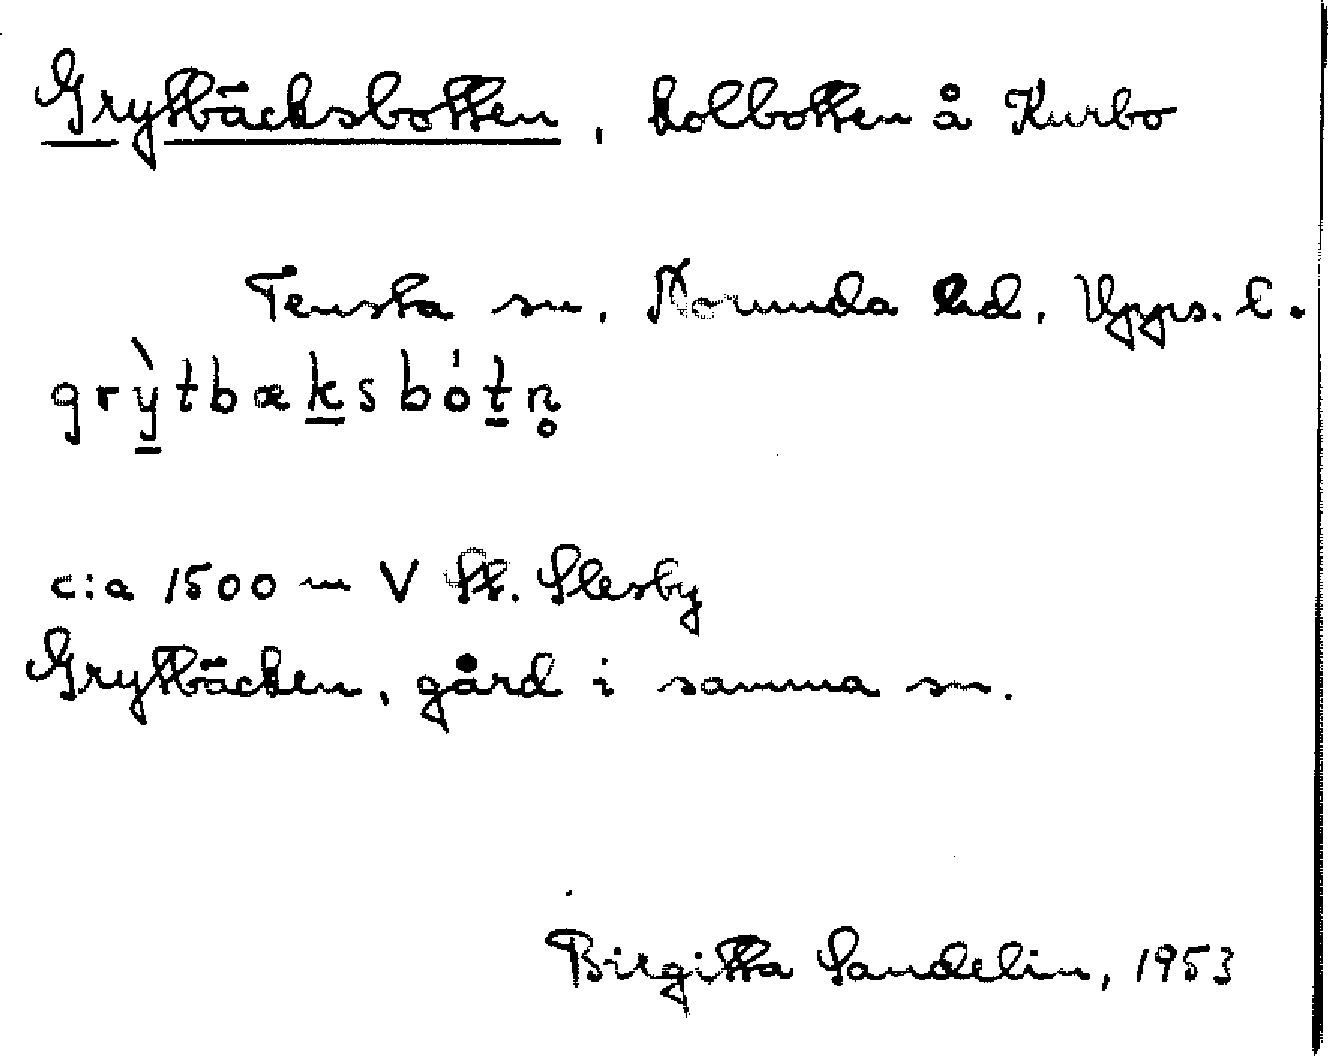 Grytbäcksbotten, kolbotten å Kurbo
Tensta sn. Norunda hd. Upps. l.
grỳtbæksbótn̥
c:a 1500 m V St. Slesby
Grytbäcken, gård i samma sn.
Birgitta Sandelin, 1953